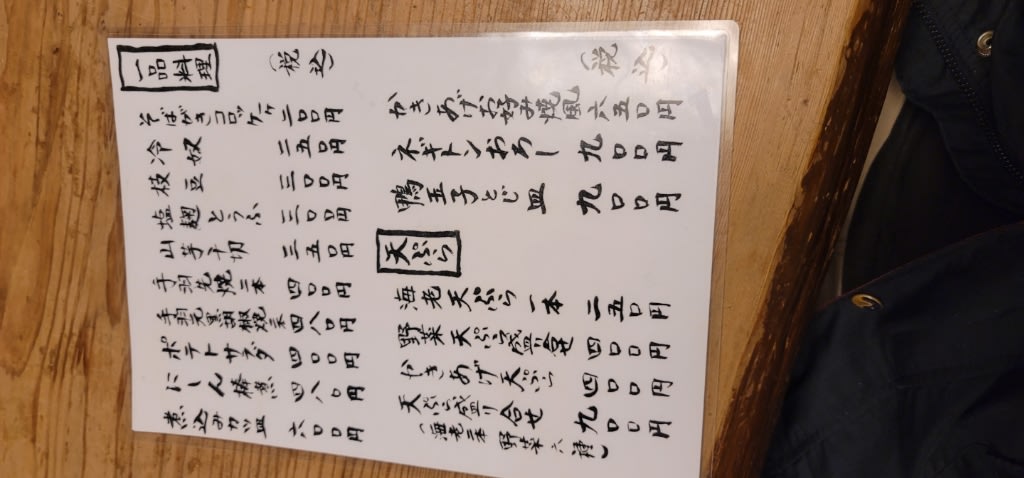 一品料理 (税込)
そばがきコロッケ 二〇〇円
冷奴 二五〇円
枝豆 三〇〇円
塩麹とうふ 三〇〇円
山芋千切 三五〇円
手羽先焼二本 四〇〇円
手羽先黒胡椒焼二本 四八〇円
ポテトサラダ 四〇〇円
にしん棒煮 四八〇円
煮込みカツ皿 六〇〇円
(税込)
かきあげお好み焼風 六五〇円
ネギトンおろし 九〇〇円
鴨玉子とじ皿 九〇〇円
天ぷら
海老天ぷら一本 二五〇円
野菜天ぷら盛り合せ 四〇〇円
かきあげ天ぷら 四〇〇円
天ぷら盛り合せ 九〇〇円
(海老二本 野菜六種)